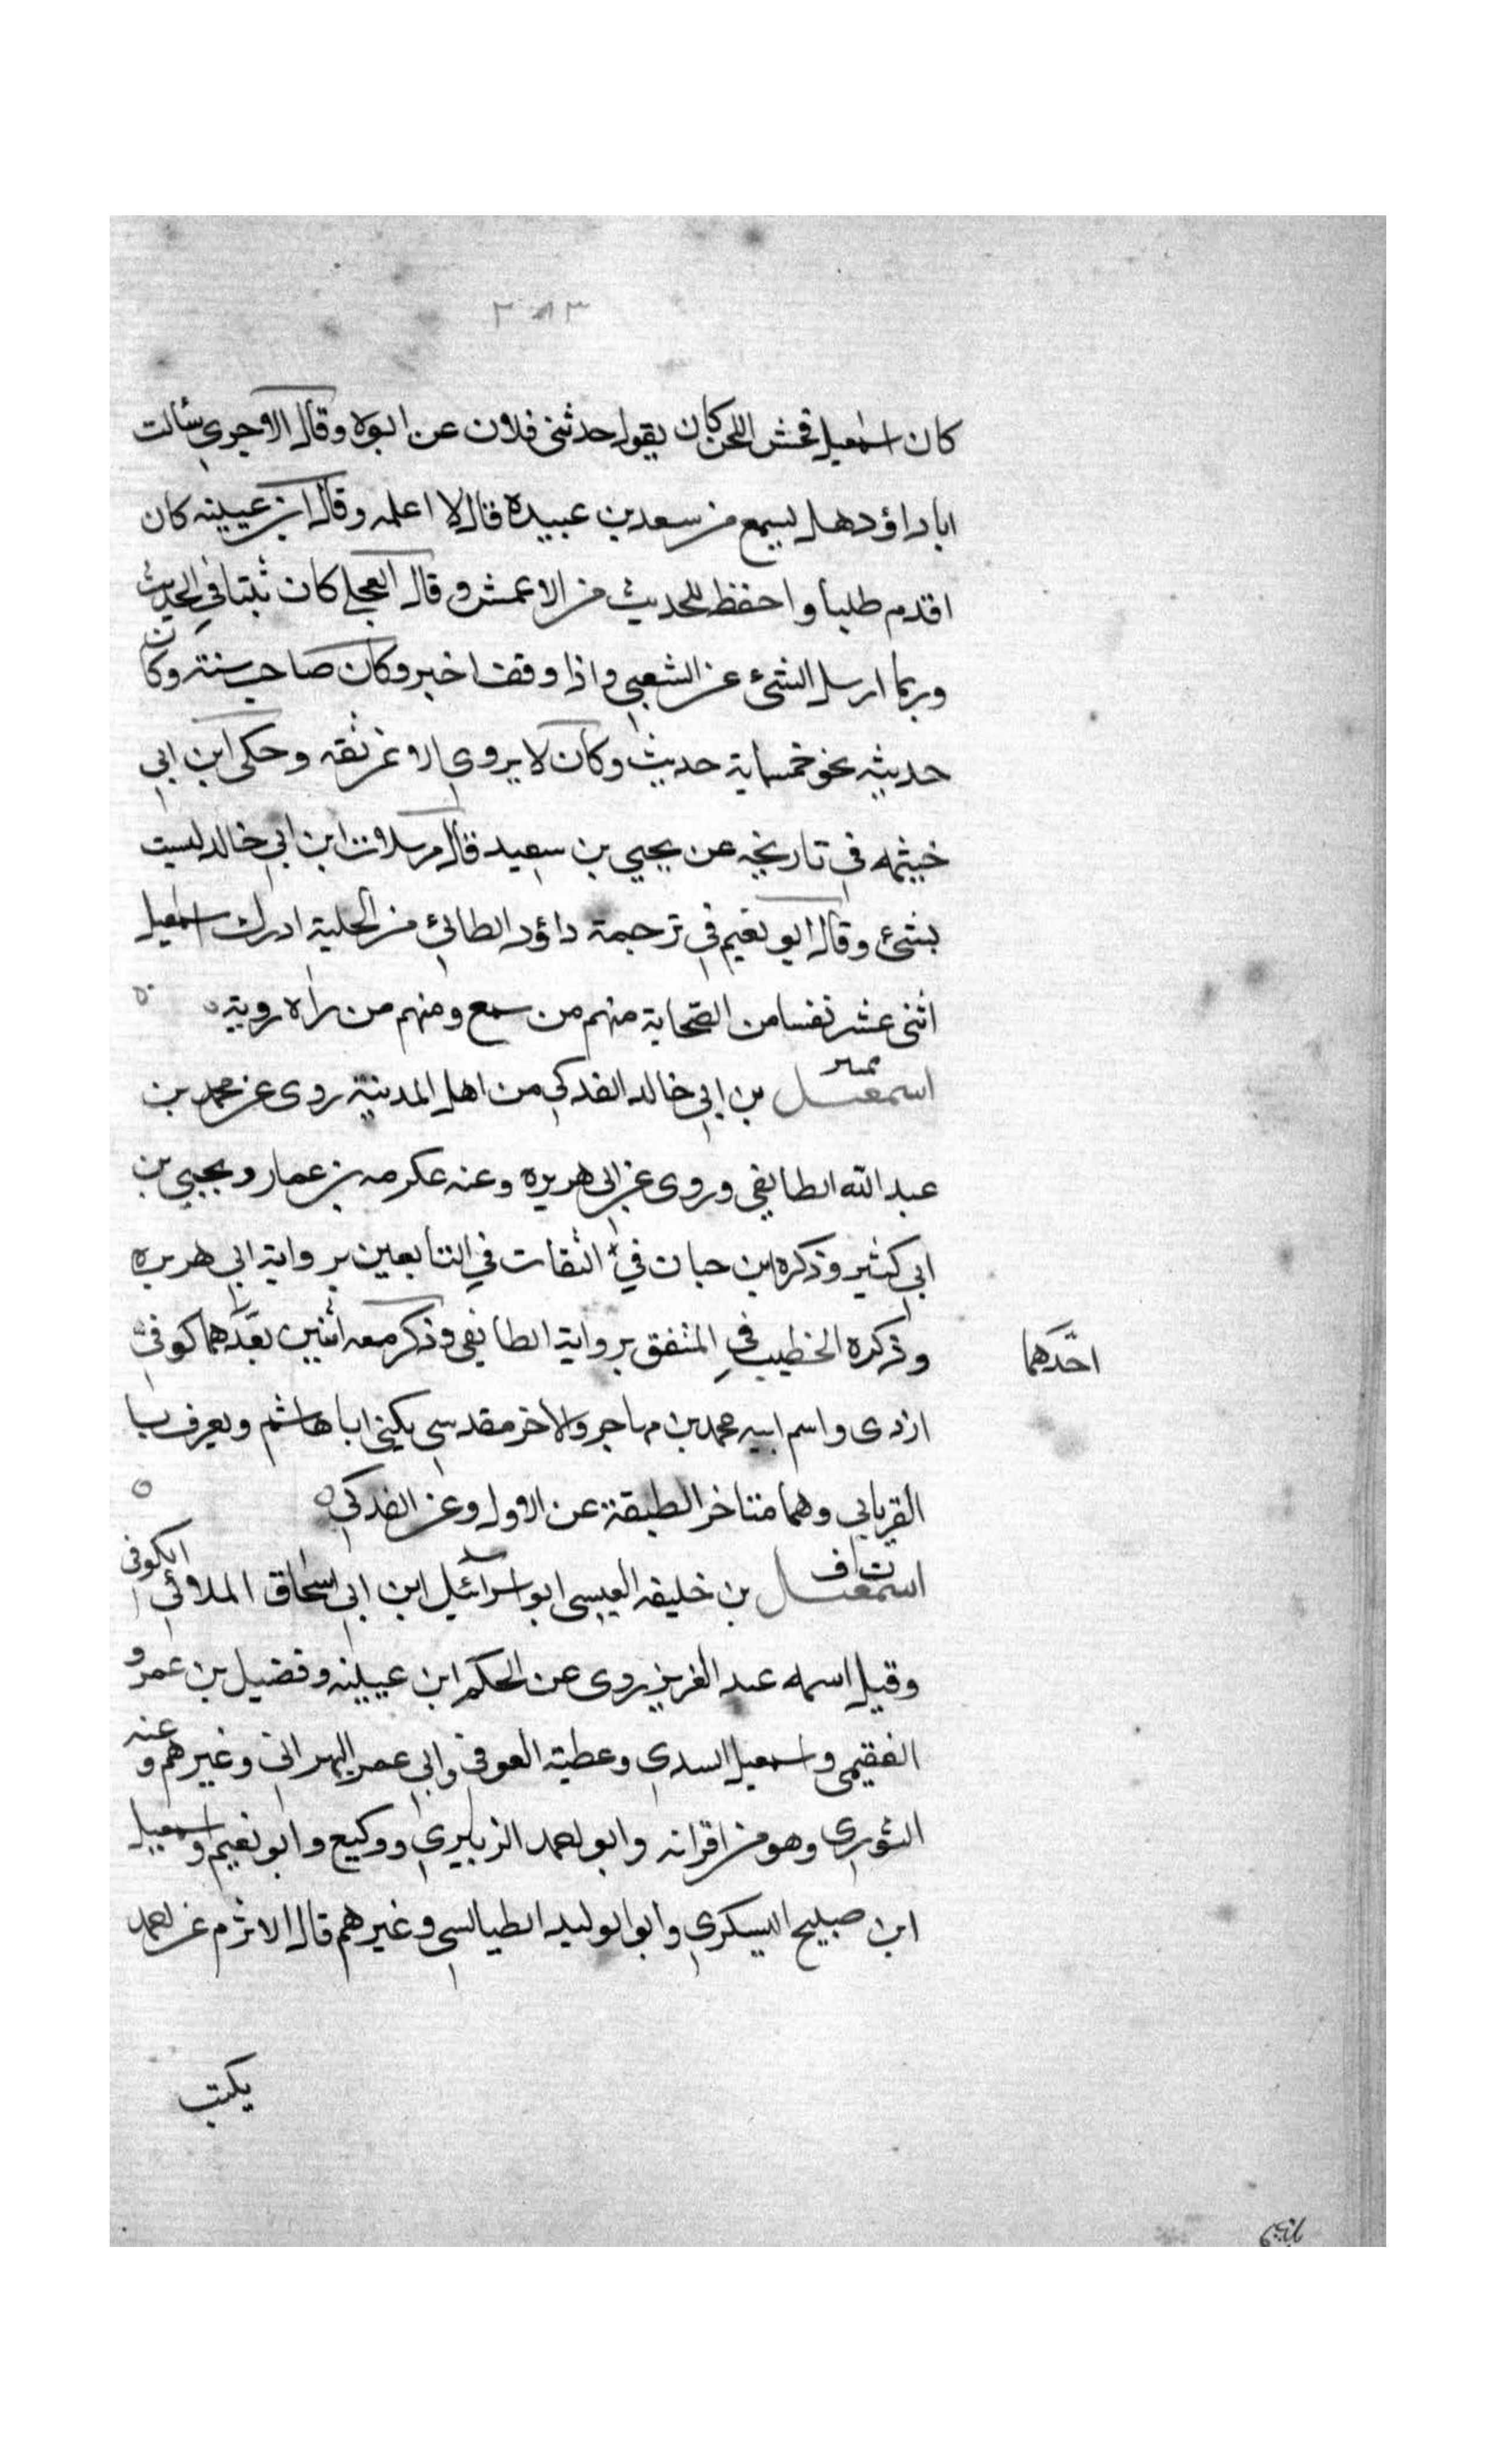 ٣٨٣
كان اسمعيل فحش اللحن كان يقول حدثني فلان عن ابوه وقال الاجري سئالت
ابا داؤد هل سمع من سعد بن عبيدة قال لا اعلمه وقال ابن عيينه كان
اقدم طلبا واحفظ للحديث من الاعمش وقال العجلي كان ثبتا في الحديث
وربما ارسل الشئ عن الشعبي واذا وقف اخبر وكان صاحب سنته وكان
حديثه نحو خمسماية حديث وكان لا يروي الا عن ثقه وحكى ابن ابي
خيثمه في تاريخه عن يحيي بن سعيد قال مرسلات ابن ابي خالد ليست
بشئ وقال ابو نعيم في ترجمة داؤد الطائي من الحلية ادرك اسمعيل
اثنى عشر نفسا من الصحابة منهم من سمع ومنهم من راه روية ه
تمييز
اسمعيل بن ابي خالد الفدكي من اهل المدينة روى عن محمد بن
عبد الله الطايفي وروى عن ابي هريره وعنه عكرمه بن عمار ويحيي بن
ابي كثير وذكره ابن حبان في الثقات في التابعين برواية ابي هريره
وذكره الخطيب في المتفق برواية الطايفي وذكر معه اثنين بعدهما كوفي
احدهما
ازدى واسم ابيه محمد بن مهاجر والاخر مقدسي يكنى ابا هاشم ويعرف با
القريابي وهما متاخر الطبقة عن الاول وعن الفدكي ه
ت ق
اسمعيل بن خليفه العبسى ابو اسرآئيل ابن ابي اسحاق الملائي الكوفي
وقيل اسمه عبد العزيز روى عن الحكم ابن عيينه وفضيل بن عمرو
الفقيمي واسمعيل السدي وعطية العوفي وابي عمر البهراني وغيرهم وعنه
الثوري وهو من اقرانه وابو احمد الزبيري ووكيع وابو نعيم واسمعيل
ابن صبيح اليسكري وابو الوليد الطيالسي وغيرهم قال الاثرم عن احمد
يكتب